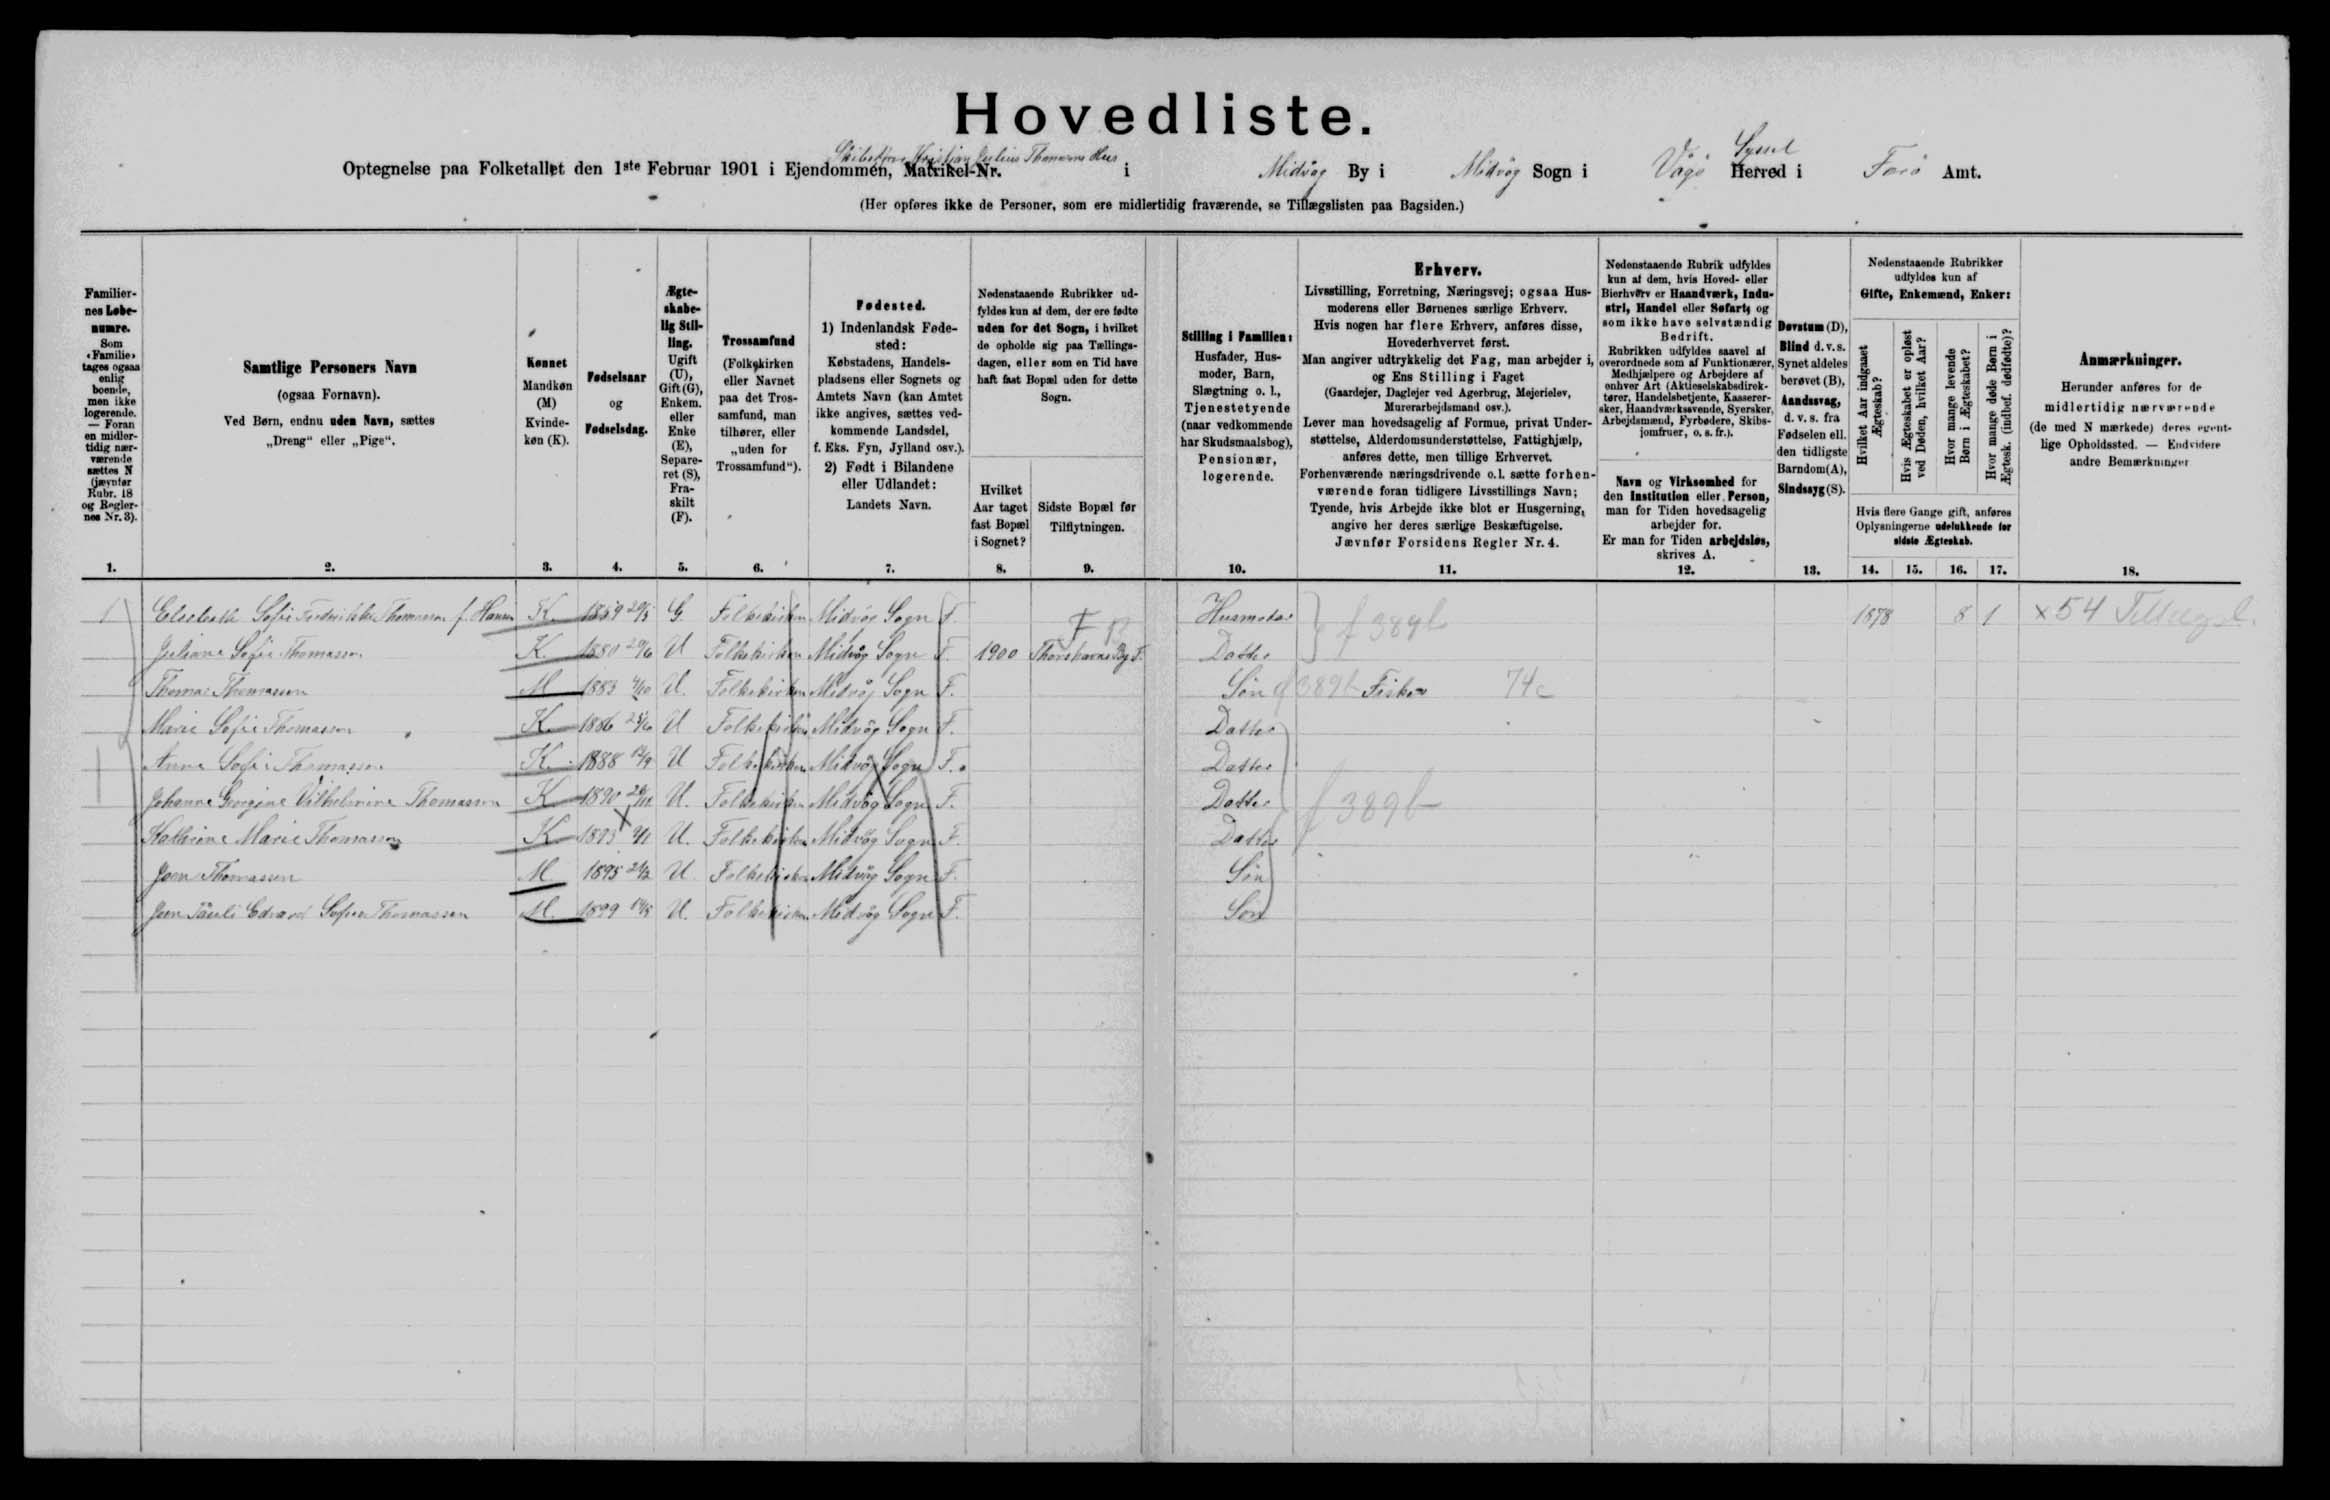 Hovedliste.
Skibsfører Kristian Julius Thomasens Hus
Optegnelse paa Folketallet den 1ste Februar 1901 i Ejendommen, Matrikel-Nr. i Midvåg By i Midvåg Sogn i Vågø Herred Syssel i Færø Amt.
(Her opføres ikke de Personer, som ere midlertidig fraværende, se Tillægslisten paa Bagsiden.)
Familiernes Løbenumre. Som «Familie» tages ogsaa enlig boende, men ikke logerende. — Foran en midlertidig nærværende sættes N (jævnfør Rubr. 18 og Reglernes Nr. 3).
Samtlige Personers Navn (ogsaa Fornavn). Ved Børn, endnu uden Navn, sættes „Dreng“ eller „Pige“.
Kønnet Mandkøn (M) Kvindekøn (K).
Fødselsaar og Fødselsdag.
Ægteskabelig Stilling. Ugift (U), Gift (G), Enkem. eller Enke (E), Separeret (S), Fraskilt (F).
Trossamfund (Folkekirken eller Navnet paa det Trossamfund, man tilhører, eller „uden for Trossamfund“).
Fødested. 1) Indenlandsk Fødested: Købstadens, Handelspladsens eller Sognets og Amtets Navn (kan Amtet ikke angives, sættes vedkommende Landsdel, f. Eks. Fyn, Jylland osv.). 2) Født i Bilandene eller Udlandet: Landets Navn.
Nedenstaaende Rubrikker udfyldes kun af dem, der ere fødte uden for det Sogn, i hvilket de opholde sig paa Tællingsdagen, eller som en Tid have haft fast Bopæl uden for dette Sogn.
Hvilket Aar taget fast Bopæl i Sognet?
Sidste Bopæl før Tilflytningen.
Stilling i Familien: Husfader, Husmoder, Barn, Slægtning o. l., Tjenestetyende (naar vedkommende har Skudsmaalsbog), Pensionær, logerende.
Erhverv.
Livsstilling, Forretning, Næringsvej; ogsaa Husmoderens eller Børnenes særlige Erhverv.
Hvis nogen har flere Erhverv, anføres disse, Hovederhvervet først.
Man angiver udtrykkelig det Fag, man arbejder i, og Ens Stilling i Faget
(Gaardejer, Daglejer ved Agerbrug, Mejerielev, Murerarbejdsmand osv.).
Lever man hovedsagelig af Formue, privat Understøttelse, Alderdomsunderstøttelse, Fattighjælp, anføres dette, men tillige Erhvervet.
Forhenværende næringsdrivende o.l. sætte forhenværende foran tidligere Livsstillings Navn;
Tyende, hvis Arbejde ikke blot er Husgerning, angive her deres særlige Beskæftigelse.
Jævnfør Forsidens Regler Nr. 4.
Nedenstaaende Rubrik udfyldes kun af dem, hvis Hoved- eller Bierhverv er Haandværk, Industri, Handel eller Søfart, og som ikke have selvstændig Bedrift.
Rubrikken udfyldes saavel af overordnede som af Funktionærer, Medhjælpere og Arbejdere af enhver Art (Aktieselskabsdirektører, Handelsbetjente, Kasserersker, Haandværkssvende, Syersker, Arbejdsmænd, Fyrbødere, Skibsjomfruer, o. s. fr.).
Navn og Virksomhed for den Institution eller Person, man for Tiden hovedsagelig arbejder for.
Er man for Tiden arbejdsløs, skrives A.
Døvstum (D), Blind d. v. s. Synet aldeles berøvet (B), Aandssvag, d. v. s. fra Fødselen ell. den tidligste Barndom (A), Sindssyg (S).
Nedenstaaende Rubrikker udfyldes kun af Gifte, Enkemænd, Enker:
Hvilket Aar indgaaet Ægteskab?
Hvis Ægteskabet er opløst ved Døden, hvilket Aar?
Hvor mange levende Børn i Ægteskabet?
Hvor mange døde Børn i Ægtesk. (indbef. dødfødte)?
Hvis flere Gange gift, anføres Oplysningerne udelukkende for sidste Ægteskab.
Anmærkninger.
Herunder anføres for de midlertidig nærværende (de med N mærkede) deres egentlige Opholdssted. — Endvidere andre Bemærkninger
1. 2. 3. 4. 5. 6. 7. 8. 9. 10. 11. 12. 13. 14. 15. 16. 17. 18.
1 Elsebeth Sofie Fredrikke Thomassen f. Hansen K. 1859 29/5 G. Folkekirken Midvåg Sogn F. Husmoder f 389b 1878 8 1 × 54 Tillægsl.
Juliane Sofie Thomassen K 1880 29/6 U Folkekirken Midvåg Sogn F. 1900 Thorshavns By F. Datter
Thomas Thomassen M 1883 4/10 U. Folkekirken Midvåg Sogn F. Søn f 389b Fisker 74c
Marie Sofie Thomassen K 1886 25/6 U Folkekirken Midvåg Sogn F. Datter
Anna Sofie Thomassen K. 1888 14/9 U Folkekirken Midvåg Sogn F. Datter
Johanne Georgine Vilhelmine Thomassen K 1890 26/12 U. Folkekirken Midvåg Sogn F. Datter f 389b
Kathrine Marie Thomassen K 1893 U. Folkekirken Midvåg Sogn F. Datter
Joen Thomassen M. 1895 21/2 U Folkekirken Midvåg Sogn F. Søn
Joen Pauli Edvard Sofus Thomassen M. 1899 14/5 U. Folkekirken Midvåg Sogn F. Søn